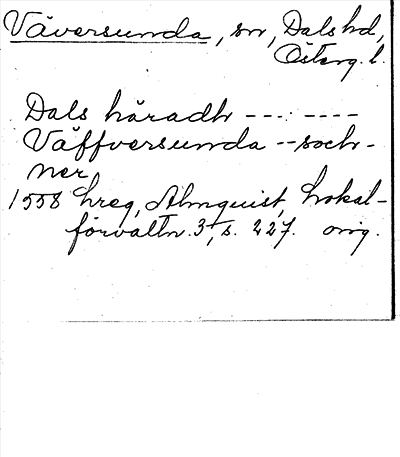 Väversunda, sn, Dals hd,
Österg. l.
Dals häradh --- ----
Väffversunda -- soch-
ner
1558 hreg, Almquist, Lokal-
förvaltn. 3, s. 227. orig.